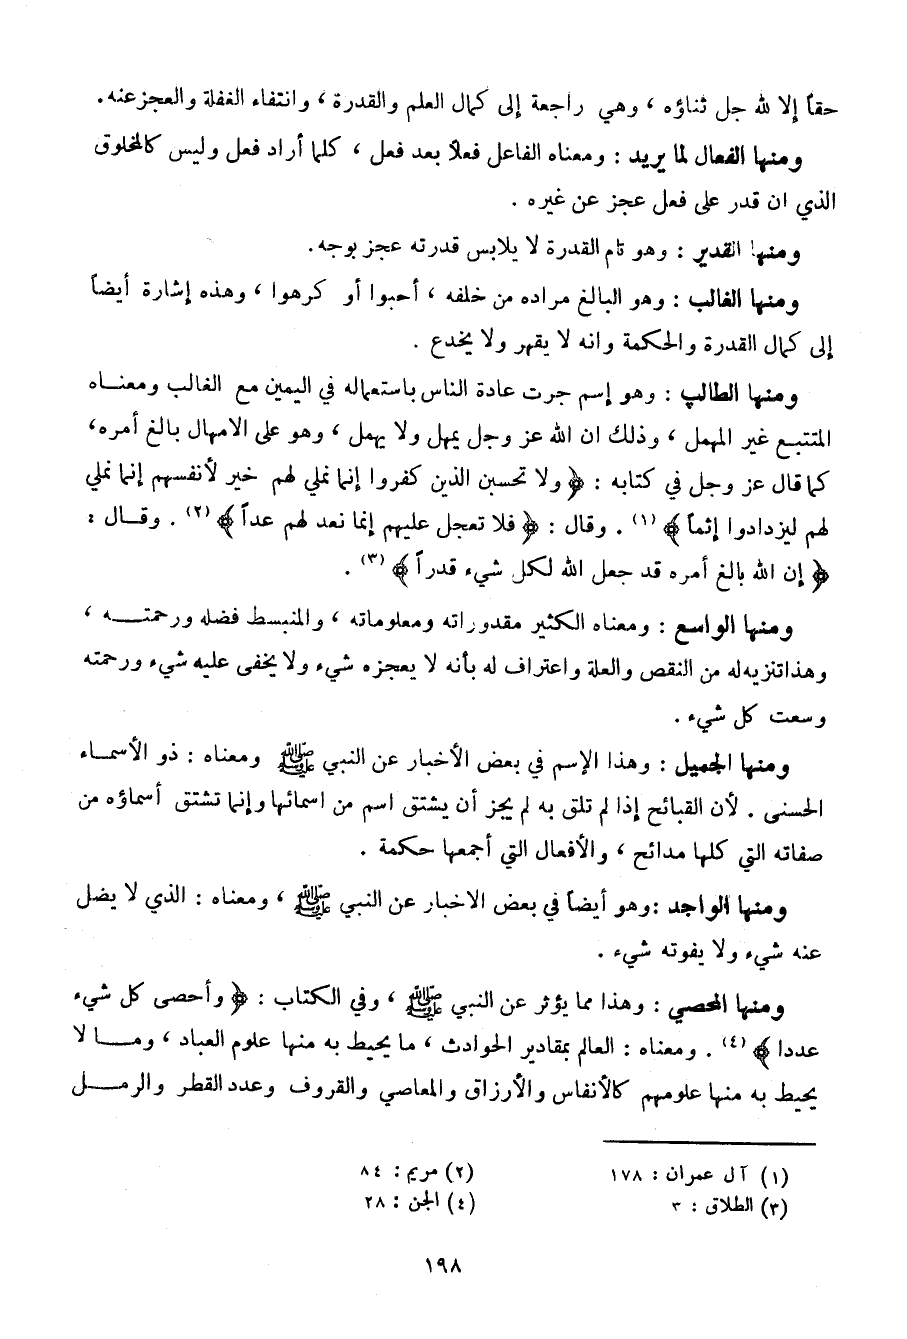 حقاً إلا لله جل ثناؤه ، وهي راجعة إلى كمال العلم والقدرة ، وانتفاء الغفلة والعجزعنه.
ومنها الفعال لما يريد : ومعناه الفاعل فعلاً بعد فعل ، كلما أراد فعل وليس كالمخلوق
الذي ان قدر على فعل عجز عن غيره .
ومنها القدير : وهو تام القدرة لا يلابس قدرته عجز بوجه.
ومنها الغالب : وهو البالغ مراده من خلقه ، أحبوا أو كرهوا ، وهذه إشارة أيضاً
إلى كمال القدرة والحكمة وانه لا يقهر ولا يخدع .
ومنها الطالب : وهو إسم جرت عادة الناس باستعماله في اليمين مع الغالب ومعنـاه
المتتبع غير المهمل ، وذلك ان الله عز وجل يمهل ولا يهمل ، وهو على الامهال بالغ أمره،
كما قال عز وجل في كتابه : ﴿ ولا تحسبن الذين كفروا إنما نملي لهم خير لأنفسهم إنما نملي
لهم ليزدادوا إثماً ﴾ (١) . وقال : ﴿ فلا تعجل عليهم إنما نعد لهم عداً ﴾ (٢) . وقـال :
﴿ إن الله بالغ أمره قد جعل الله لكل شيء قدراً ﴾ (٣) .
ومنها الواسع : ومعناه الكثير مقدوراته ومعلوماته ، والمنبسط فضله ورحمتـــه ،
وهذاتنزيه له من النقص والعلة واعتراف له بأنه لا يعجزه شيء ولا يخفى عليه شيء ورحمته
وسعت كل شيء .
ومنها الجميل : وهذا الإسم في بعض الأخبار عن النبي ﷺ ومعناه : ذو الأسمـاء
الحسنى . لأن القبائح إذا لم تلق به لم يجز أن يشتق اسم من اسمائها وإنما تشتق أسماؤه من
صفاته التي كلها مدائح ، والأفعال التي أجمعها حكمة .
ومنها الواجد :وهو أيضاً في بعض الاخبار عن النبي ﷺ ، ومعناه : الذي لا يضل
عنه شيء ولا يفوته شيء .
ومنها المحصي : وهذا مما يؤثر عن النبي ﷺ ، وفي الكتاب : ﴿ وأحصى كل شيء
عددا ﴾ (٤) . ومعناه : العالم بمقادير الحوادث ، ما يحيط به منها علوم العباد ، ومـــا لا
يحيط به منها علومهم كالأنفاس والأرزاق والمعاصي والقروف وعدد القطر والرمـــل
(١) آل عمران : ١٧٨
(٢) مريم : ٨٤
(٣) الطلاق : ٣
(٤) الجن : ٢٨
١٩٨